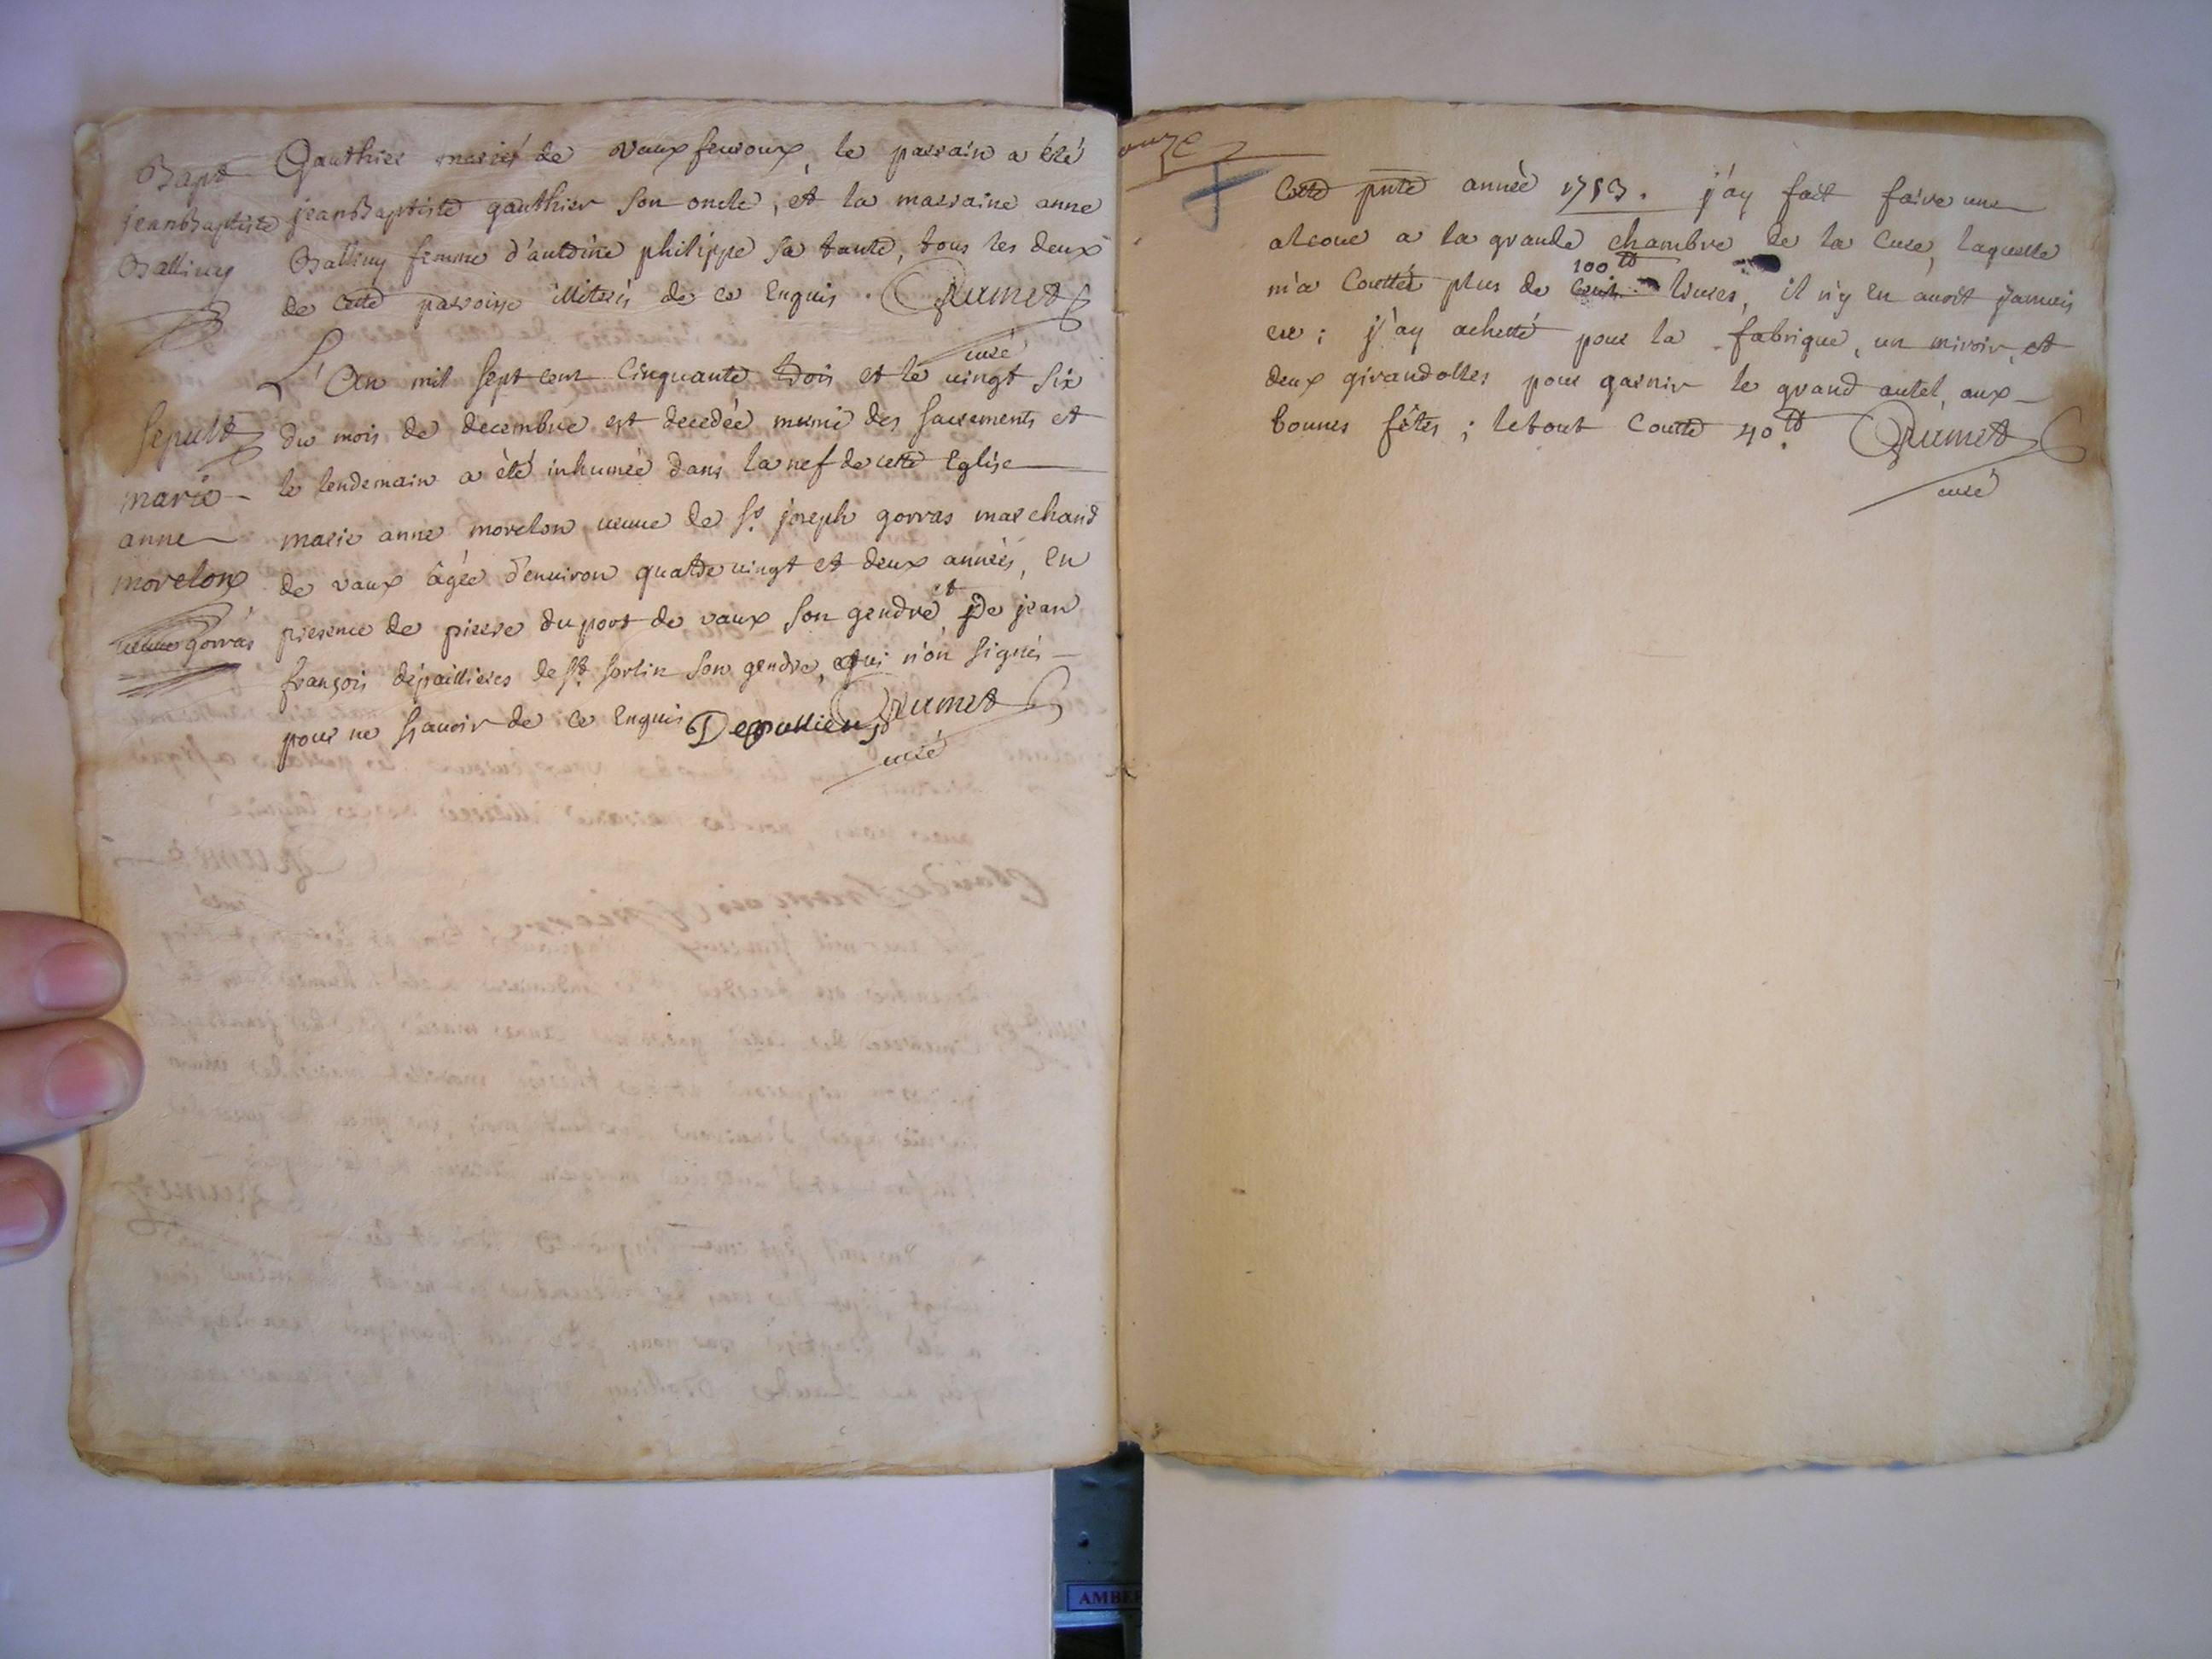 Bapt
jean Baptiste
Balliny
Gauthier mariés de Vaux fevroux, le parrain a été
jean Baptiste gauthier son oncle, et la marraine anne
Balliny femme d'antoine philippe sa tante, tous les deux
de cette parroisse illiterés de ce enquis. Grumet
curé
Sepult
marie
anne
morelon
veuve gorras
L'An mil sept cent cinquante trois et le vingt six
du mois de decembre est decedée munie des sacrements et
le lendemain a été inhumée dans la nef de cette Eglise
marie anne morelon veuve de Sr. joseph gorras marchand
de vaux âgée d'environ quatre vingt et deux années, en
presence de pierre duport de vaux son gendre, et De jean
françois dépaillieres de St. Sorlin son gendre, qui n'on signés
pour ne sçavoir de ce enquis Depallieres Grumet
curé
onze
Cette pnte année 1753. j'ay fait faire une
alcove a la grande chambre de la Cure, laquelle
m'a Couttée plus de 100 tt livres, il n'y en avoit jamais
eu ; j'ay achetté pour la fabrique, un miroir, et
deux girandolles pour garnir le grand autel, aux
bonnes fêtes ; le tout Coutte 40 tt. Grumet
curé
AMBE